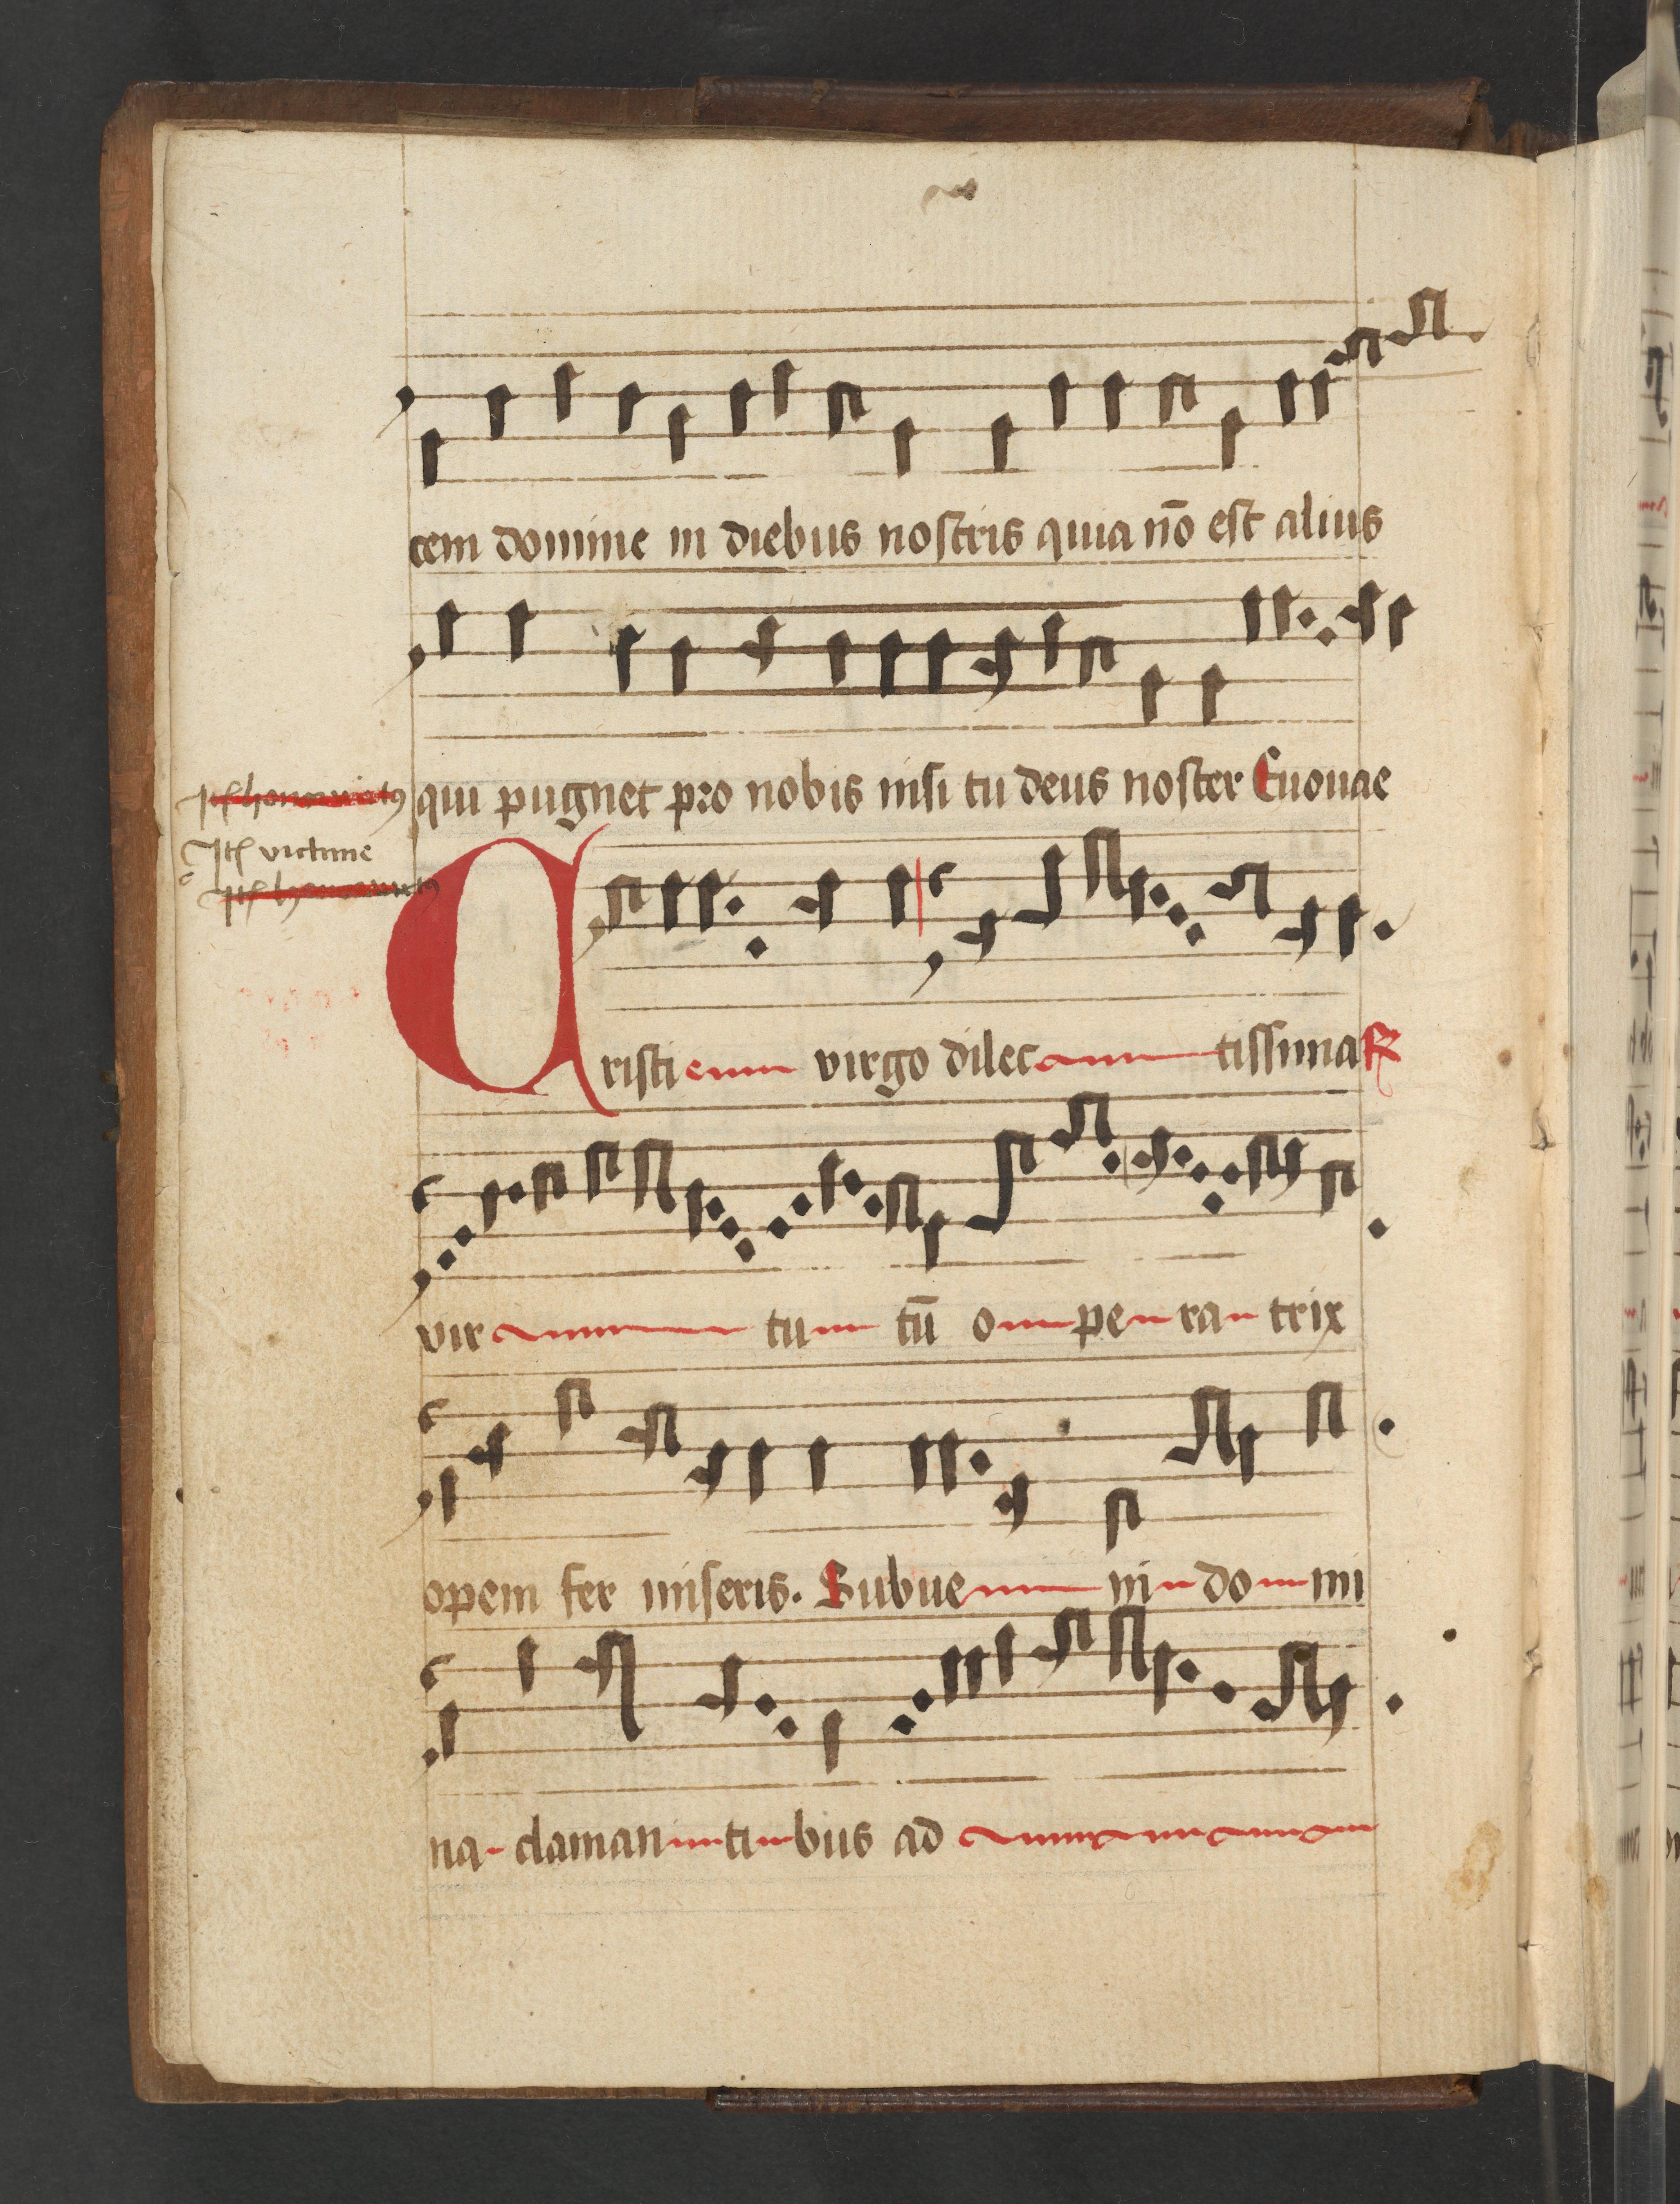 cem domine in diebus nostris quia nō est alius
qui pugnet pro nobis nisi tu deus noster Euouae
victime
Cristi virgo dilec tissima R
vir tu tū o pe ra trix
opem fer miseris. Subue ni do mi
na claman ti bus ad